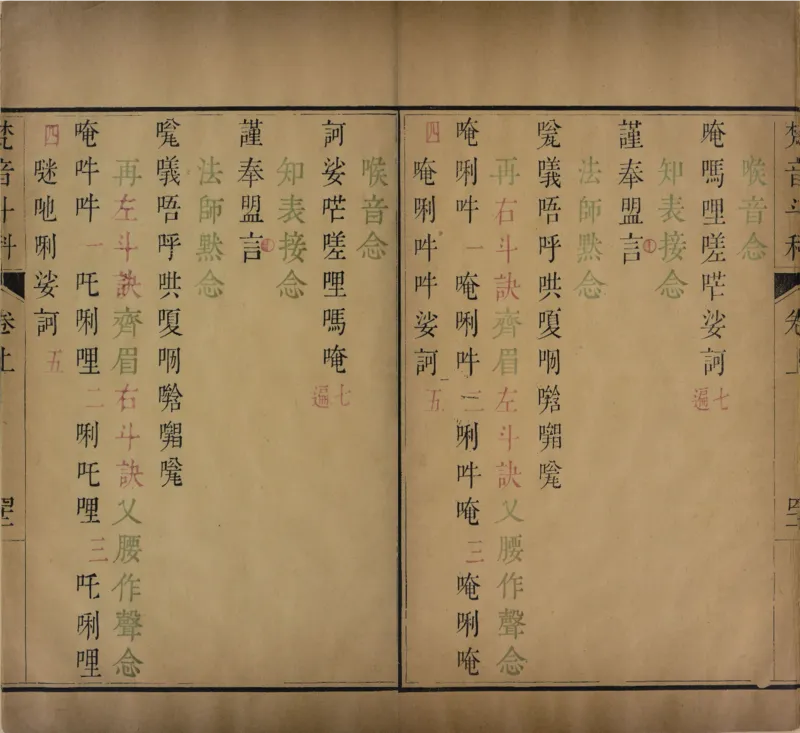 梵音斗科 卷上
喉音念
唵嗎哩嗟娑訶 七遍
知表接念
謹奉盟言
法師黙念
唔呼哄嗄
再右斗訣齊眉左斗訣叉腰作聲念
唵唎吽 一 唵唎吽 二 唎吽唵 三 唵唎唵
四 唵唎吽吽娑訶 五
喉音念
訶娑嗟哩嗎唵 七遍
知表接念
謹奉盟言
法師黙念
唔呼哄嗄
再左斗訣齊眉右斗訣叉腰作聲念
唵吽吽 一 吒唎哩 二 唎吒哩 三 吒唎哩
四 吔唎娑訶 五
梵音斗科 卷上